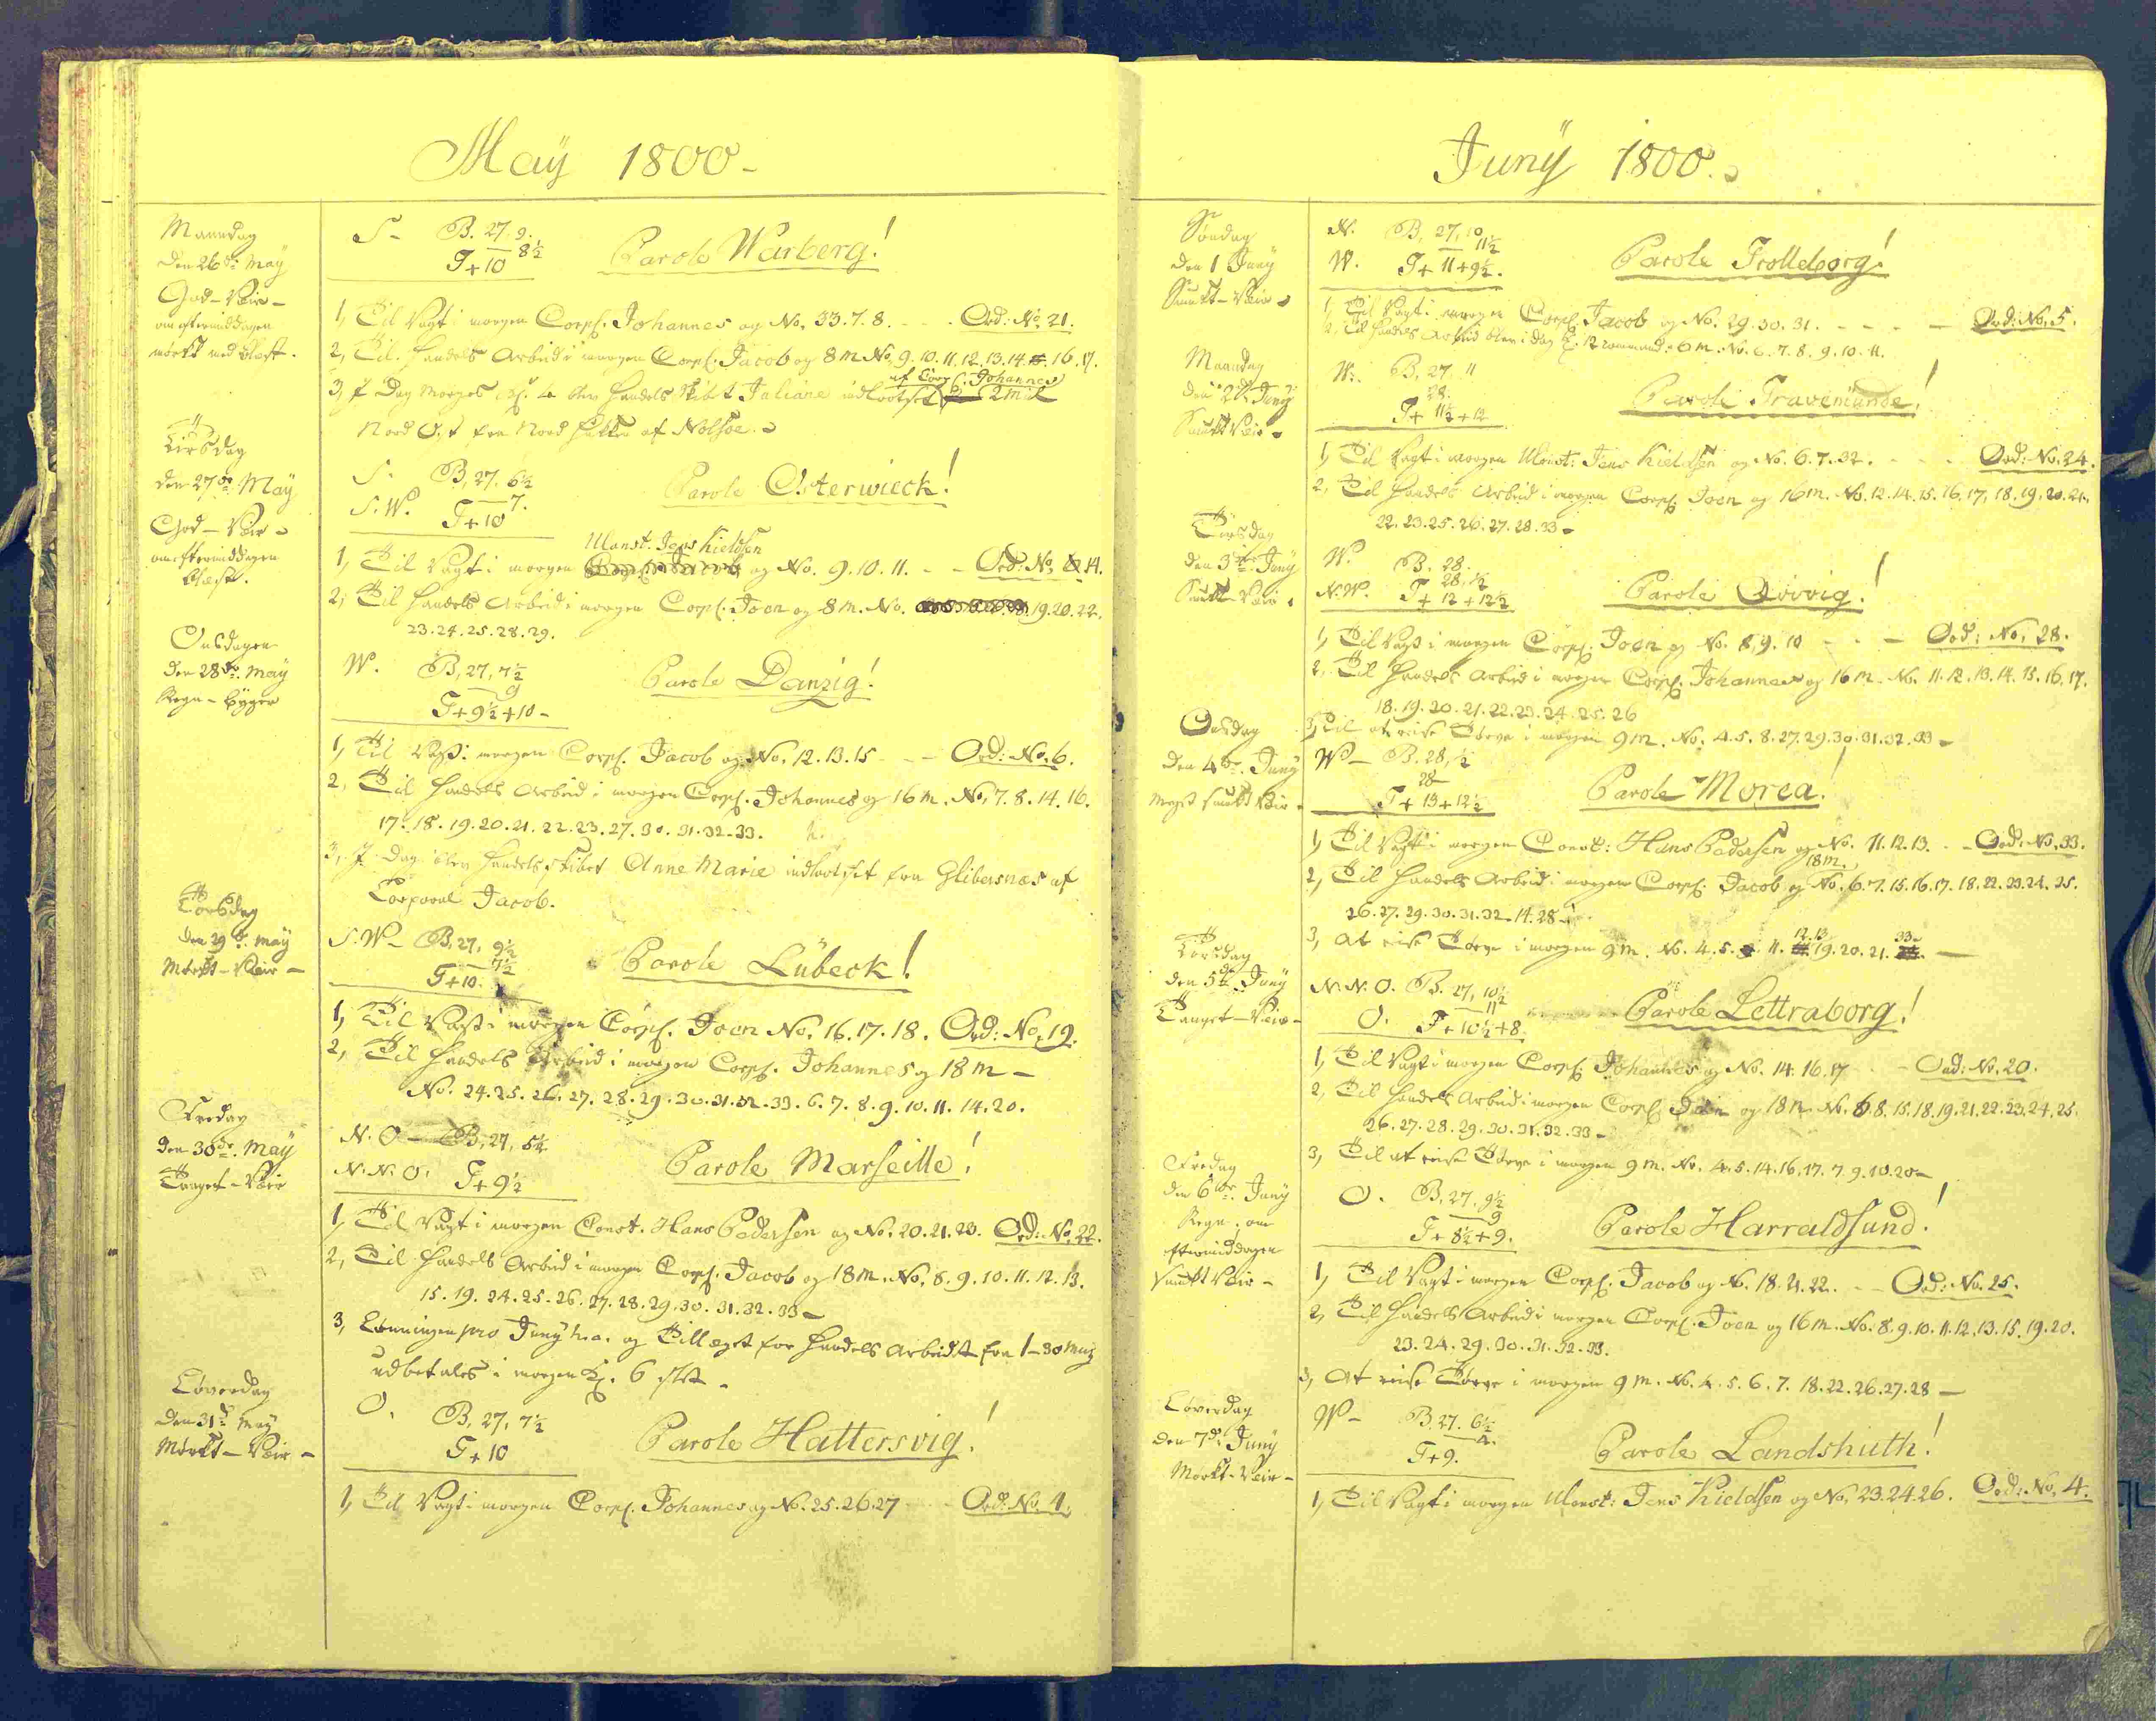 May 1800 -
Mandag
den 26de May
God - Veir -
om eftermiddagen
mørkt med blæst.
S - B. 27. 9.
8½
T+10
Parole Warberg!
1, Til Vagt i morgen Corpl. Johannes og No. 33. 7. 8. - - - Ord: No. 21.
2, Til Handels Arbeid i morgen Corpl. Jacob og 8 m No. 9. 10. 11. 12. 13. 14. 16. 17.
3, I Dag Morges Kl. 4 blev Handels Skibet Juliane indlootset af Corpl. Johannes 2 mil
Nord Ost fra Nord Hukken af Nolsøe.
Tirsdag
den 27de May
God - Veir -
om eftermiddagen
blæst.
S. B, 27. 6½
S. W. 7.
T+10
Parole Osterwieck!
1, Til Vagt i morgen Uconst. Jens Kieldsen og No. 9. 10. 11. - - Ord: No. 14.
2, Til Handels Arbeid i morgen Corpl. Joen og 8 m. No. 19. 20. 22.
23. 24. 25. 28. 29.
Onsdagen
den 28de May
Regn - byger
W. B, 27, 7½
9
T+9½+10 -
Parole Danzig!
1, Til Vagt i morgen Corpl. Jacob og No. 12. 13. 15 - - - Ord: No. 6.
2, Til Handels Arbeid i morgen Corpl. Johannes og 16 m. No. 7. 8. 14. 16.
17. 18. 19. 20. 21. 22. 23. 27. 30. 31. 32. 33.
3, I Dag blev Handels skibet Anne Marie indlootset fra Glibersnæs af
Corporal Jacob.
Torsdag
den 29de May
Mørkt - Veir -
S. W - B, 27, 9½
7½
T+10.
Parole Lübeck!
1, Til Vagt i morgen Corpl. Joen No. 16. 17. 18. Ord: No. 19.
2, Til Handels Arbeid i morgen Corpl. Johannes og 18 m -
No. 24. 25. 26. 27. 28. 29. 30. 31. 32. 33. 6. 7. 8. 9. 10. 11. 14. 20.
Fredag
den 30de May
Taaget - Veir
N. O - B, 27, 5½
N. N. O. T+9½
Parole Marseille!
1, Til Vagt i morgen Const. Hans Pedersen og No. 20. 21. 23. Ord: No. 22.
2, Til Handels Arbeid i morgen Corpl. Jacob og 18 m. No. 8. 9. 10. 11. 12. 13.
15. 19. 24. 25. 26. 27. 28. 29. 30. 31. 32. 33 -
3, Lønningen pro Juny h. a. og Tillæget for Handels Arbeidet fra 1 - 30 May
udbetales i morgen Kl. 6 slet -
Løverdag
den 31te May
Mørkt - Veir -
O. B. 27, 7½
T+10
Parole Hattersvig!
1, Til Vagt i morgen Corpl. Johannes og No. 25. 26. 27 - - Ord: No. 1.
Juny 1800.
Søndag
den 1 Juny
Smukt - Veir
N. B, 27, 10
11½
W. T+ 11+9½.
Parole Trolleborg!
1, Til Vagt i morgen Corpl. Jacob og No. 29. 30. 31. - - - - Ord: No. 5.
2, Til Handels Arbeid blev i dag Kl. 12 command: 6 m. No. 6. 7. 8. 9. 10. 11.
Mandag
den 2den Juny
Smukt Veir -
W. B, 27 11
28.
T+ 11½+12
Parole Travemünde!
1, Til Vagt i morgen Uconst: Jens Kieldsen og No. 6. 7. 32. - - - Ord: No. 24.
2, Til Handels Arbeid i morgen Corpl. Joen og 16 m. No. 12. 14. 15. 16. 17. 18. 19. 20. 21.
22. 23. 25. 26. 27. 28. 33 -
Tirsdag
den 3die Juny
Smukt - Veir.
W. B. 28.
28, ½
N. W. T+ 12+12½
Parole Qvivig!
1, Til Vagt i morgen Corpl. Joen og No. 8. 9. 10 - - - Ord: No. 28.
2, Til Handels Arbeid i morgen Corpl. Johannes og 16 m. No. 11. 12. 13. 14. 15. 16. 17.
18. 19. 20. 21. 22. 23. 24. 25. 26
3, Til at reise Tørve i morgen 9 m. No. 4. 5. 8. 27. 29. 30. 31. 32. 33 -
Onsdag
den 4de Juny
meget smukt Veir -
W - B. 28, ½
28
T+ 13+12½
Parole Morea!
1, Til Vagt i morgen Const: Hans Pedersen og No. 11. 12. 13. - - Ord: No. 33.
2, Til Handels Arbeid i morgen Corpl. Jacob og 18 m. No. 6. 7. 15. 16. 17. 18. 22. 23. 24. 25.
26. 27. 29. 30. 31. 32. 14. 28 -
3, At reise Tørve i morgen 9 m. No. 4. 5. 11. 12. 13 19. 20. 21. 33 -
Torsdag
den 5te Juny
Taaget - Veir -
N. N. O. B. 27, 10½
11
O. T+10½+8.
Parole Lettraborg!
1, Til Vagt i morgen Corpl. Johannes og No. 14. 16. 17 - - - Ord: No. 20.
2, Til Handels Arbeid i morgen Corpl. Joen og 18 m. No. 6. 8. 15. 18. 19. 21. 22. 23. 24. 25.
26. 27. 28. 29. 30. 31. 32. 33 -
3, Til at reise Tørve i morgen 9 m. No. 4. 5. 14. 16. 17. 7. 9. 10. 20 -
Fredag
den 6te Juny
Regn, om
eftermiddagen
smukt Veir -
O. B, 27, 9½
9
T+ 8½+9.
Parole Harraldsund!
1, Til Vagt i morgen Corpl. Jacob og No. 18. 21. 22. - - Ord: No. 25.
2, Til Handels Arbeid i morgen Corpl. Joen og 16 m. No. 8. 9. 10. 11. 12. 13. 15. 19. 20.
23. 24. 29. 30. 31. 32. 33.
3, At reise Tørve i morgen 9 m. No. 4. 5. 6. 7. 18. 22. 26. 27. 28 -
Løverdag
den 7de Juny
Mørkt - Veir -
W - B. 27. 6½
4.
T+9.
Parole Landshuth!
1, Til Vagt i morgen Uconst: Jens Kieldsen og No. 23. 24. 26. Ord: No. 4.